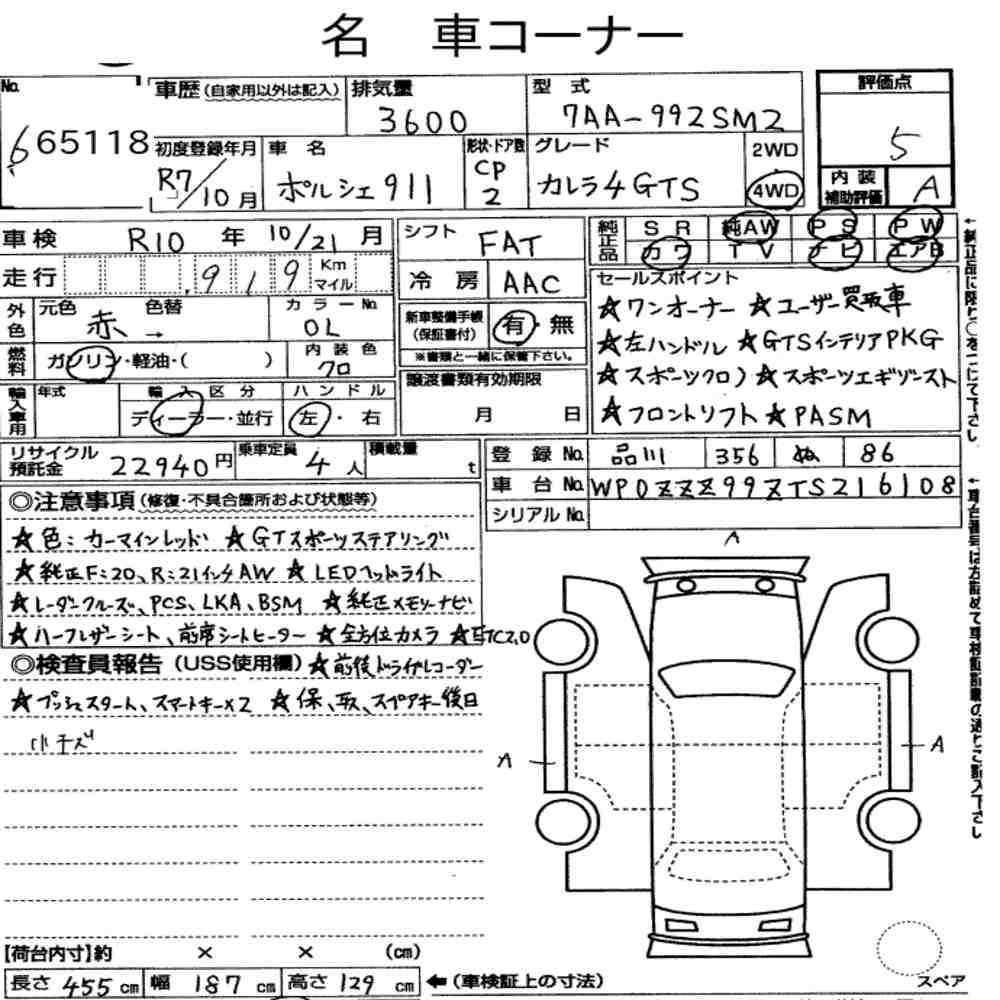 名 車コーナー
No. 665118
車歴 (自家用以外は記入)
排気量 3600
型 式 7AA-992SM2
評価点 5
内装補助評価 A
初度登録年月 R7/10月
車名 ポルシェ911
形状・ドア数 CP 2
グレード カレラ4GTS
2WD
4WD
車検 R10年 10/21月
シフト FAT
純正品 SR 純AW PS PW
カワ TV ナビ エアB
走行 919 Km マイル
冷房 AAC
外色 元色 赤 色替 →
カラーNo. 0L
新車整備手帳(保証書付) 有・無
※書類と一緒に保管下さい。
燃料 ガソリン・軽油・( )
内装色 クロ
譲渡書類有効期限
月 日
輸入車用 年式
輸入区分 ディーラー・並行
ハンドル 左・右
セールスポイント
★ワンオーナー ★ユーザー買取車
★左ハンドル ★GTSインテリアPKG
★スポーツクロノ ★スポーツエギゾースト
★フロントリフト ★PASM
←純正品に限り○をつけて下さい
リサイクル預託金 22940円
乗車定員 4人
積載量 t
登録No. 品川 356 ぬ 86
車台No. WP0ZZZ99ZTS216108
シリアルNo.
◎注意事項(修復・不具合箇所および状態等)
★色:カーマインレッド ★GTスポーツステアリング
★純正F:20、R:21インチAW ★LEDヘッドライト
★レーダークルーズ、PCS、LKA、BSM ★純正メモリーナビ
★ハーフレザーシート、前席シートヒーター ★全方位カメラ ★ETC2.0
◎検査員報告(USS使用欄) ★前後ドライブレコーダー
★プッシュスタート、スマートキー×2 ★保、取、スペアキー後日
小キズ
A
A
A
スペア
【荷台内寸】約 × × (cm)
長さ 455cm 幅 187cm 高さ 129cm ←(車検証上の寸法)